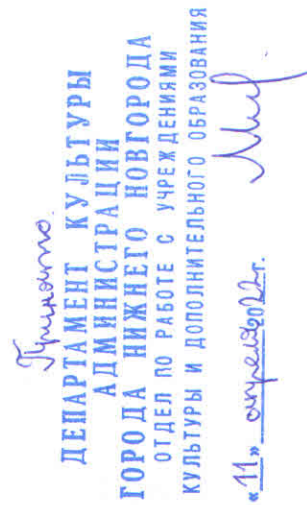 Принято.
ДЕПАРТАМЕНТ КУЛЬТУРЫ
АДМИНИСТРАЦИИ
ГОРОДА НИЖНЕГО НОВГОРОДА
ОТДЕЛ ПО РАБОТЕ С УЧРЕЖДЕНИЯМИ
КУЛЬТУРЫ И ДОПОЛНИТЕЛЬНОГО ОБРАЗОВАНИЯ
«11» апреля 2022г.